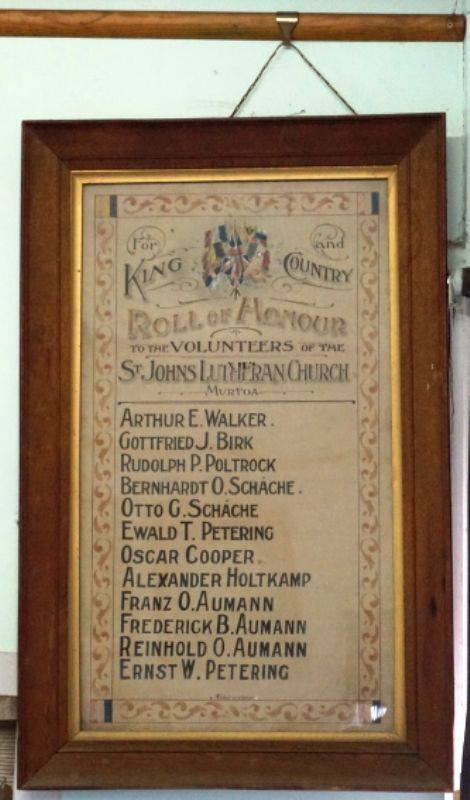 For and
King Country
Roll of Honour
to the Volunteers of the
St. Johns Lutheran Church
Murtoa
Arthur E. Walker.
Gottfried J. Birk
Rudolph P. Poltrock
Bernhardt O. Schäche.
Otto G. Schäche
Ewald T. Petering
Oscar Cooper.
Alexander Holtkamp
Franz O. Aumann
Frederick B. Aumann
Reinhold O. Aumann
Ernst W. Petering